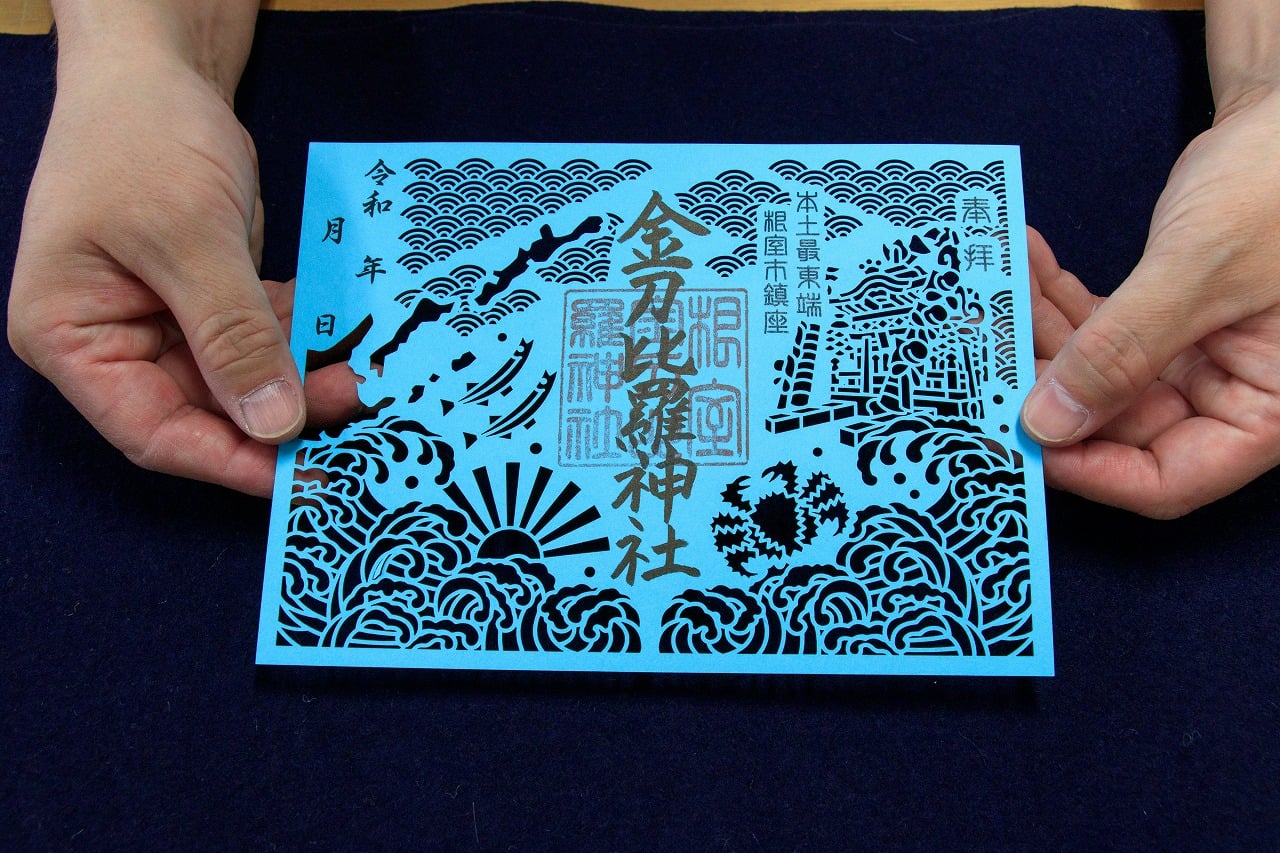 奉拝
本土最東端
根室市鎮座
金刀比羅神社
根室
金刀比
羅神社
令和
年
月
日